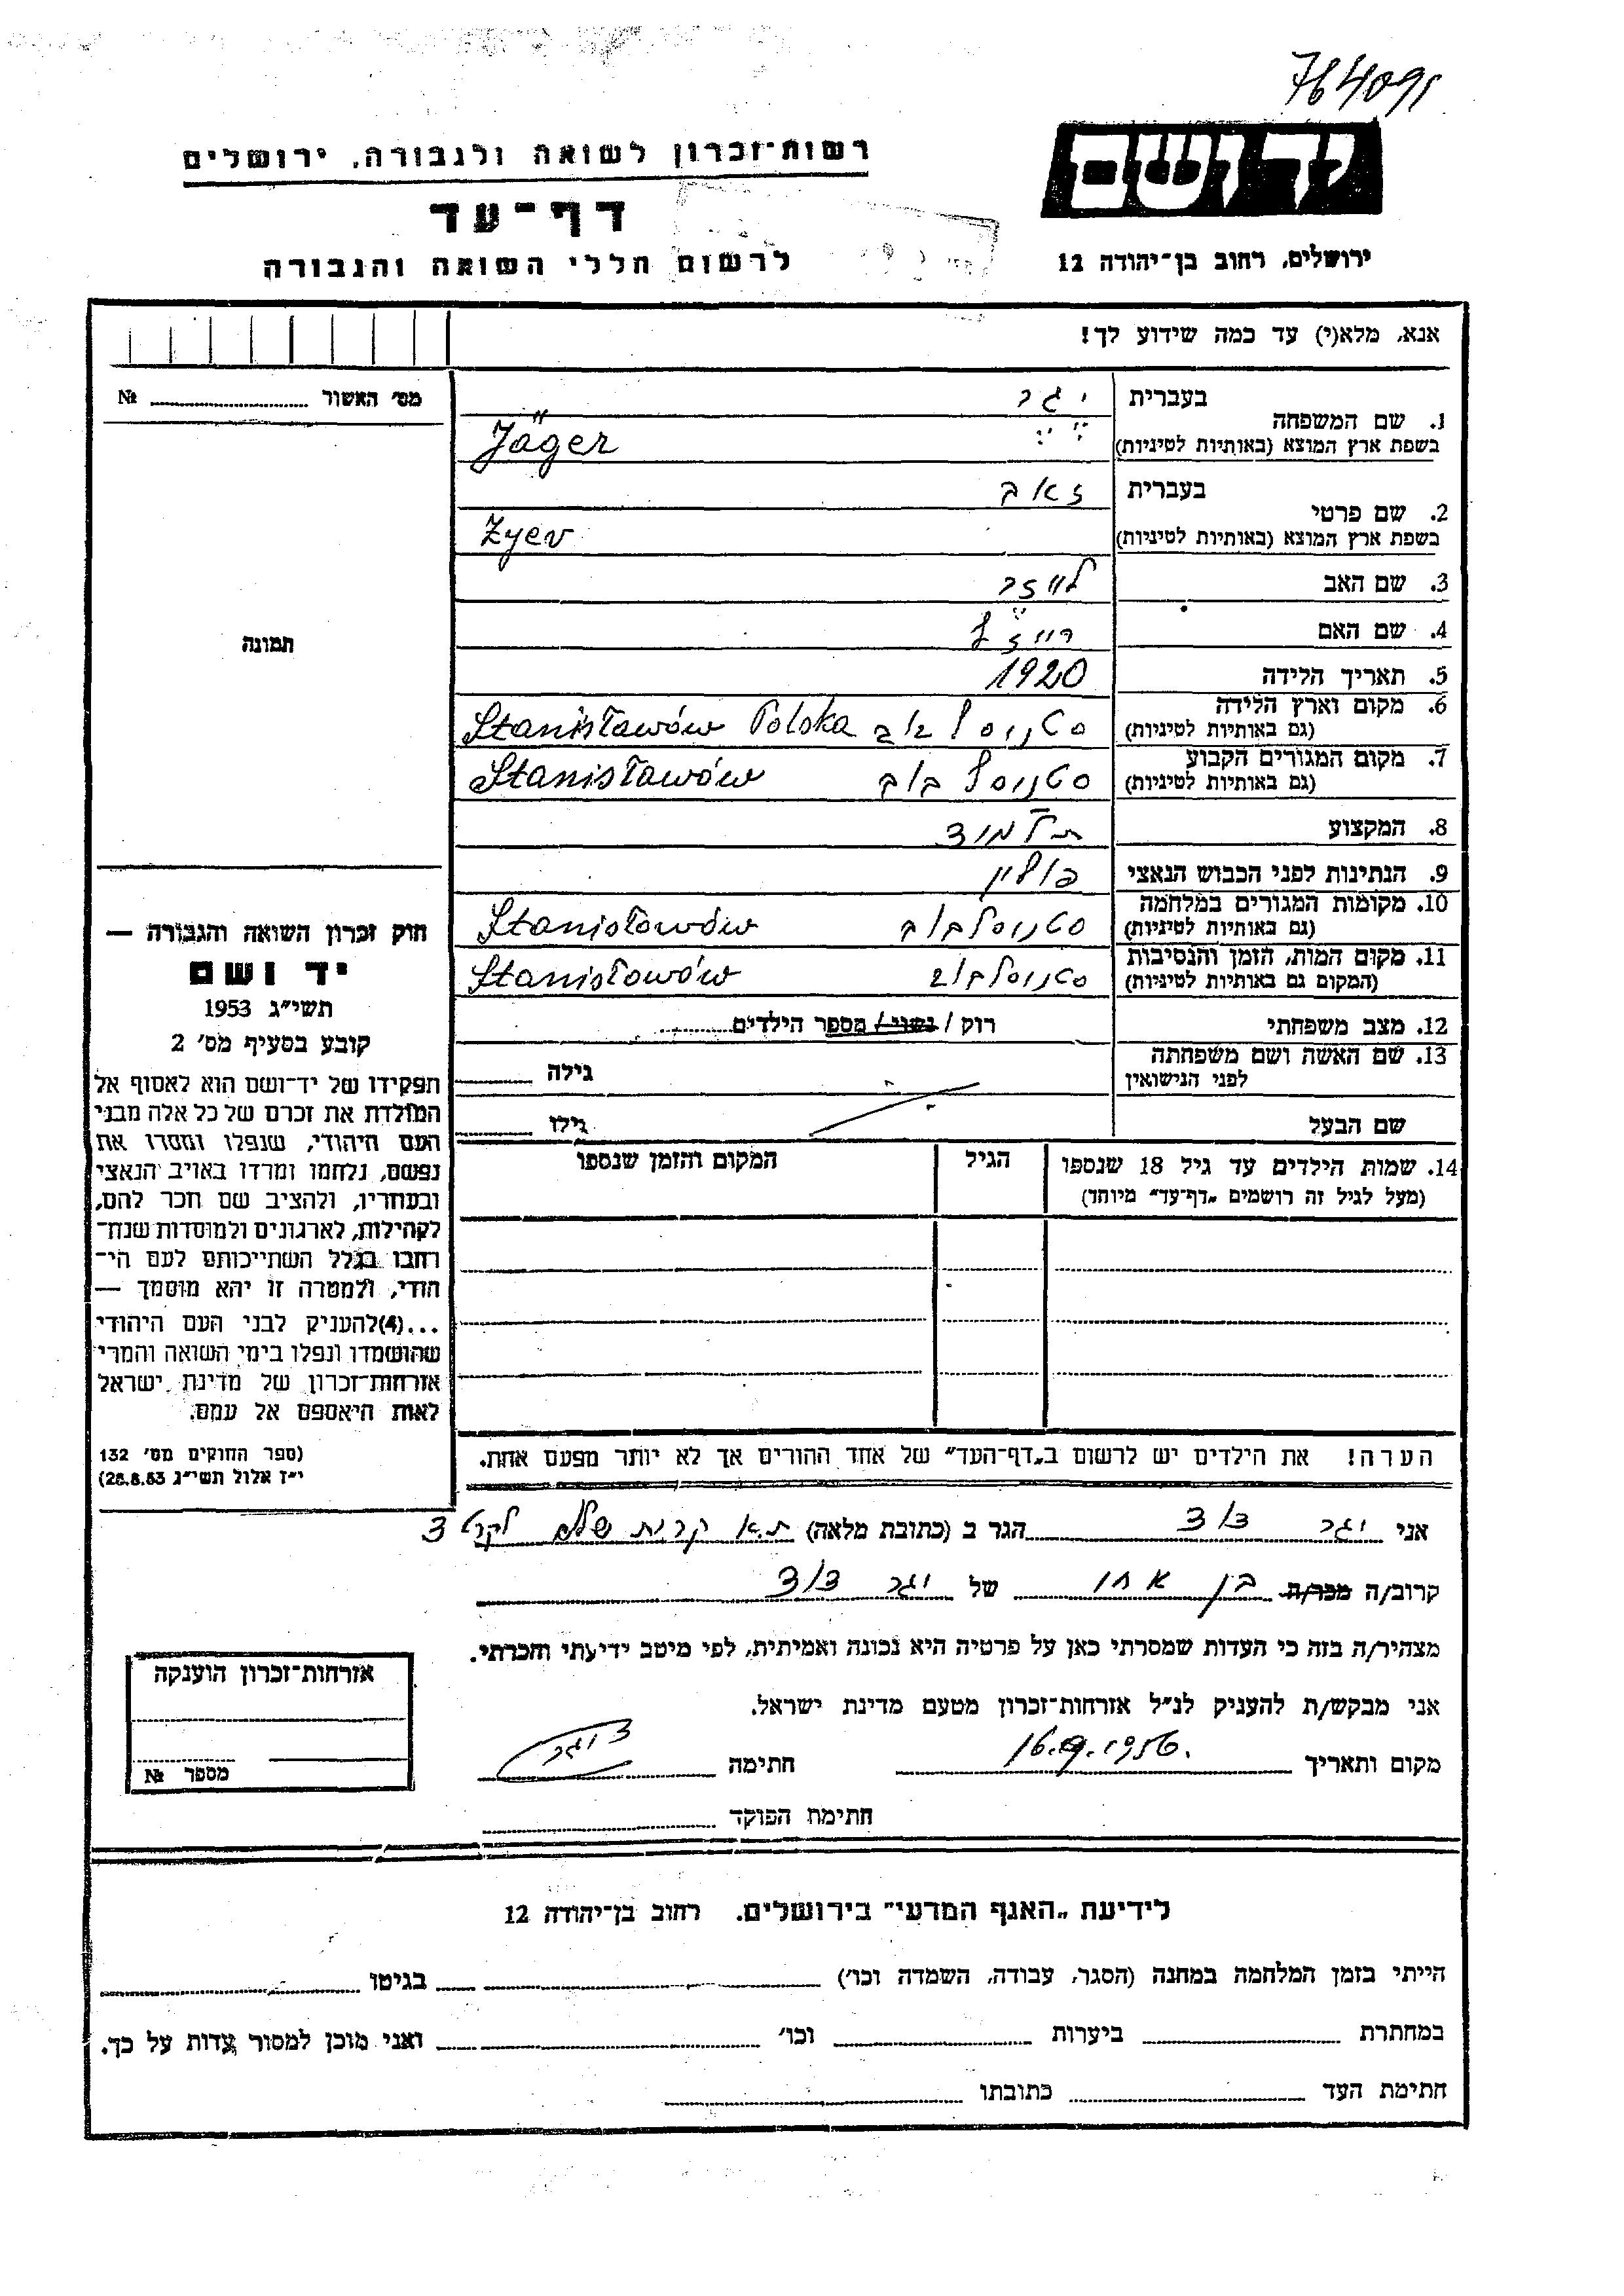 764091
רשות־זכרון לשואה ולגבורה, ירושלים
יד ושם
דף־עד
ירושלים, רחוב בן־יהודה 12
לרשום חללי השואה והגבורה
אנא, מלא(י) עד כמה שידוע לך!
מס׳ האשור № 
1. שם המשפחה
בעברית יגר
בשפת ארץ המוצא (באותיות לטיניות) Jäger
2. שם פרטי
בעברית זאב
בשפת ארץ המוצא (באותיות לטיניות) Zyev
3. שם האב לייזר
4. שם האם רייזל
5. תאריך הלידה 1920
6. מקום וארץ הלידה
(גם באותיות לטיניות) סטניסלבוב Stanisławów Polska
7. מקום המגורים הקבוע
(גם באותיות לטיניות) סטניסלבוב Stanisławów
8. המקצוע תלמיד
9. הנתינות לפני הכבוש הנאצי פולין
10. מקומות המגורים במלחמה
(גם באותיות לטיניות) סטניסלבוב Stanisławów
11. מקום המות, הזמן והנסיבות
(המקום גם באותיות לטיניות) סטניסלבוב Stanisławów
12. מצב משפחתי רוק / נשוי / מספר הילדים
13. שם האשה ושם משפחתה
לפני הנישואין גילה
שם הבעל גילו
14. שמות הילדים עד גיל 18 שנספו הגיל המקום והזמן שנספו
(מעל לגיל זה רושמים „דף־עד״ מיוחד)
תמונה
חוק זכרון השואה והגבורה —
יד ושם
תשי״ג 1953
קובע בסעיף מס׳ 2
תפקידו של יד־ושם הוא לאסוף אל
המולדת את זכרם של כל אלה מבני
העם היהודי, שנפלו ומסרו את
נפשם, נלחמו ומרדו באויב הנאצי
ובעוזריו, ולהציב שם וזכר להם,
לקהילות, לארגונים ולמוסדות שנח־
רבו בגלל השתייכותם לעם הי־
הודי, ולמטרה זו יהא מוסמך —
...(4)להעניק לבני העם היהודי
שהושמדו ונפלו בימי השואה והמרי
אזרחות־זכרון של מדינת ישראל
לאות היאספם אל עמם.
(ספר החוקים מס׳ 132
י״ז אלול תשי״ג 28.8.53)
הערה! את הילדים יש לרשום ב„דף־העד״ של אחד ההורים אך לא יותר מפעם אחת.
אני יגר דוד הגר ב (כתובת מלאה) ת.א קרית שלום 3
קרוב/ה מכר/ה בן אחי של יגר דוד
מצהיר/ה בזה כי העדות שמסרתי כאן על פרטיה היא נכונה ואמיתית, לפי מיטב ידיעתי והכרתי.
אני מבקש/ת להעניק לנ״ל אזרחות־זכרון מטעם מדינת ישראל.
מקום ותאריך 16.9.1956. חתימה ד יגר
חתימת הפוקד
אזרחות־זכרון הוענקה
מספר №
לידיעת „האגף המדעי״ בירושלים. רחוב בן־יהודה 12
הייתי בזמן המלחמה במחנה (הסגר, עבודה, השמדה וכו׳) בגיטו
במחתרת ביערות וכו׳ ואני מוכן למסור עדות על כך.
חתימת העד כתובתו